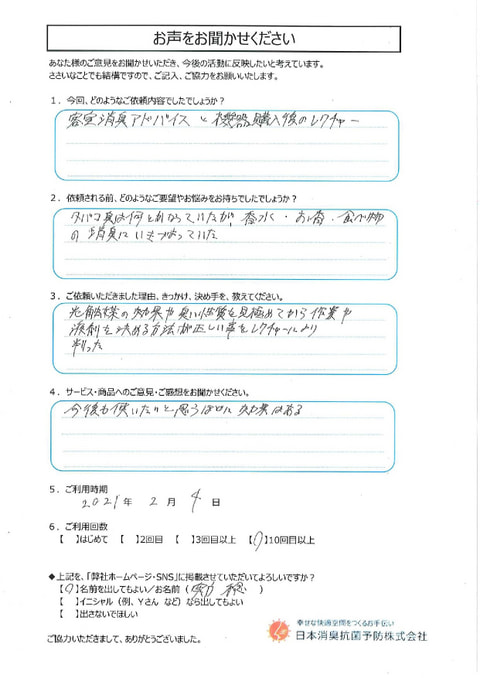 お声をお聞かせください
あなた様のご意見をお聞かせいただき、今後の活動に反映したいと考えています。
ささいなことでも結構ですので、ご記入、ご協力をお願いいたします。
1．今回、どのようなご依頼内容でしたでしょうか？
客室消臭アドバイスと機器購入後のレクチャー
2．依頼される前、どのようなご要望やお悩みをお持ちでしたでしょうか？
タバコ臭は何とかなっていたが、香水・お香・食べ物
の消臭にいきづまっていた
3．ご依頼いただきました理由、きっかけ、決め手を、教えてください。
光触媒の効果や臭い性質を見極めてから作業や
液剤を決める方法が正しい事をレクチャーにより
判った
4．サービス・商品へのご意見・ご感想をお聞かせください。
今後も使いたいと思う程に効果はある
5．ご利用時期
2021年 2月 4日
6．ご利用回数
【 】はじめて 【 】2回目 【 】3回目以上 【 】10回目以上
◆上記を、「弊社ホームページ・SNS」に掲載させていただいてよろしいですか？
【 】名前を出してもよい/お名前（ ）
【 】イニシャル（例、Yさん など）なら出してもよい
【 】出さないでほしい
ご協力いただきまして、ありがとうございました。
幸せな快適空間をつくるお手伝い
日本消臭抗菌予防株式会社